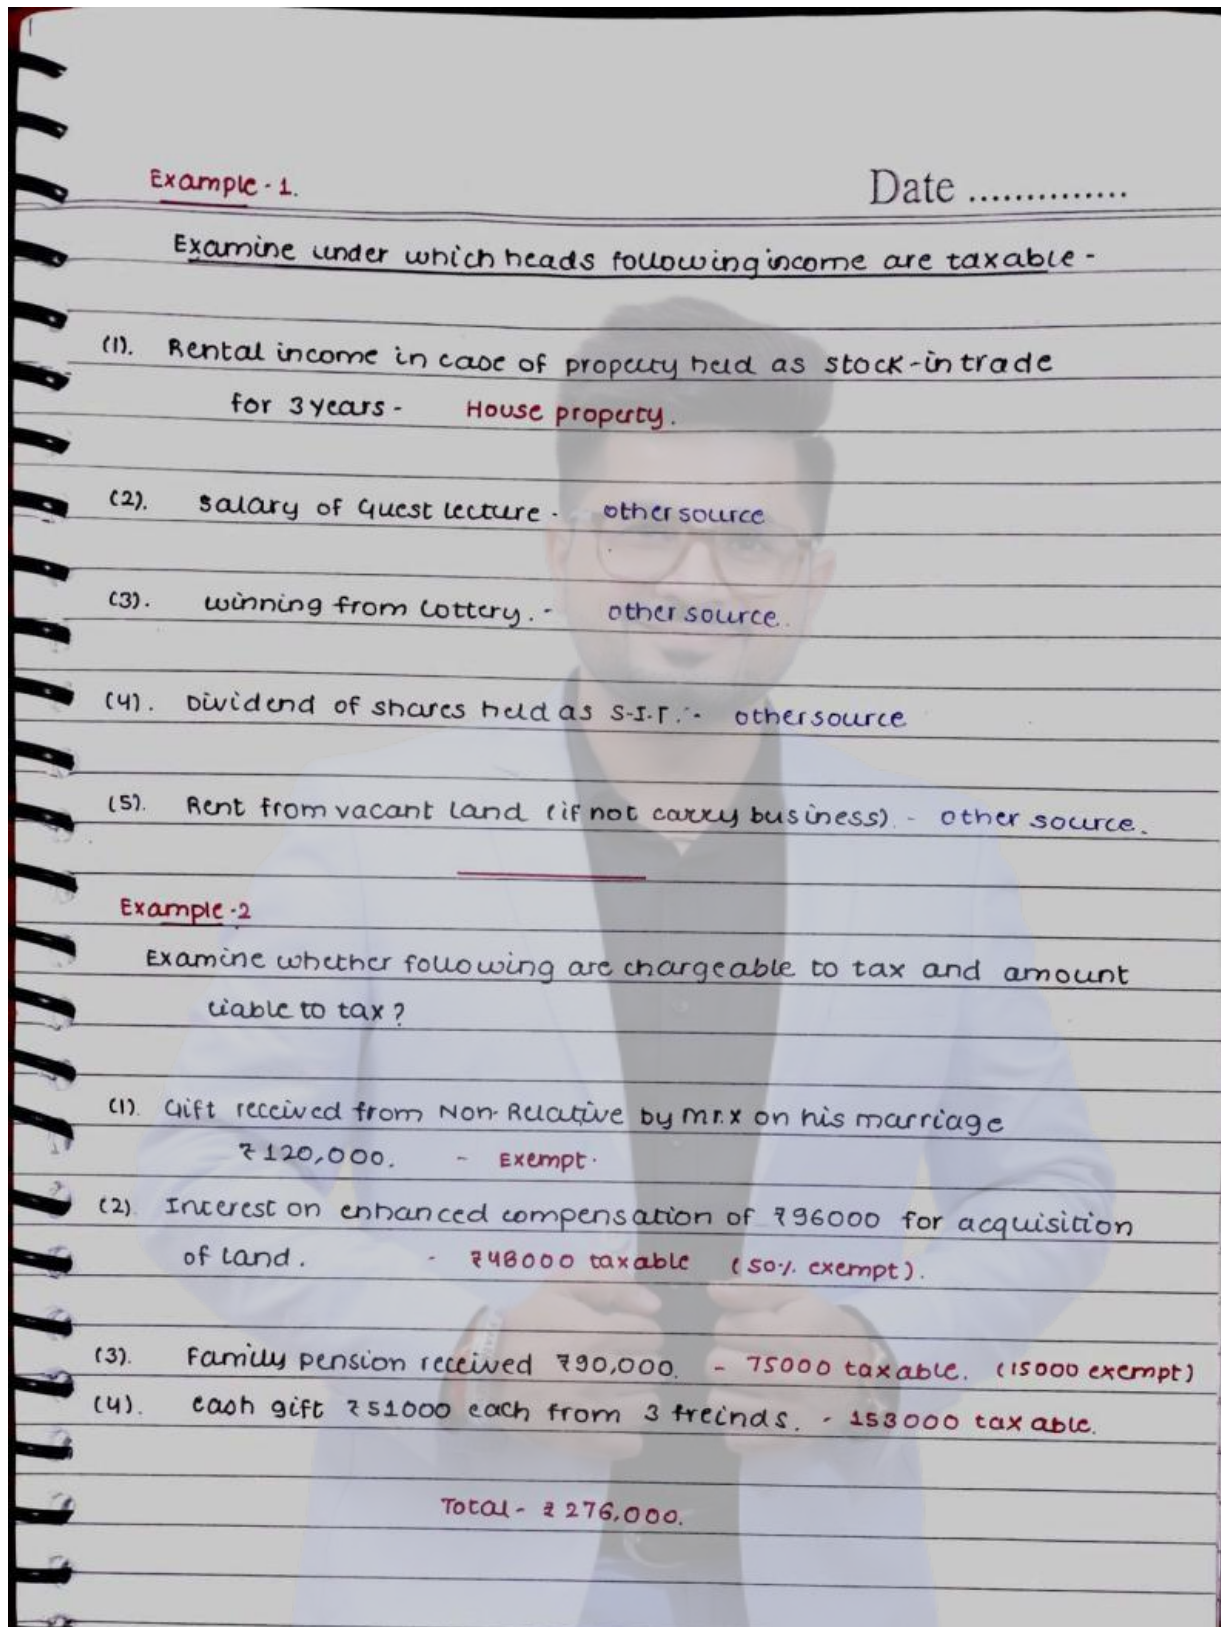 Example - 1.
Date ..............
Examine under which heads following income are taxable -
(1). Rental income in case of property held as stock-in trade
for 3 years - House property.
(2). Salary of Guest lecture - other source
(3). winning from lottery. - other source.
(4). Dividend of shares held as S-I-T. - other source
(5). Rent from vacant land (if not carry business) - other source.
Example - 2
Examine whether following are chargeable to tax and amount
liable to tax?
(1). Gift received from Non-Relative by mr.x on his marriage
₹120,000. - Exempt.
(2). Interest on enhanced compensation of ₹96000 for acquisition
of land. - ₹48000 taxable (50% exempt).
(3). Family pension received ₹90,000. - 75000 taxable. (15000 exempt)
(4). cash gift ₹51000 each from 3 freinds. - 153000 taxable.
Total - ₹276,000.